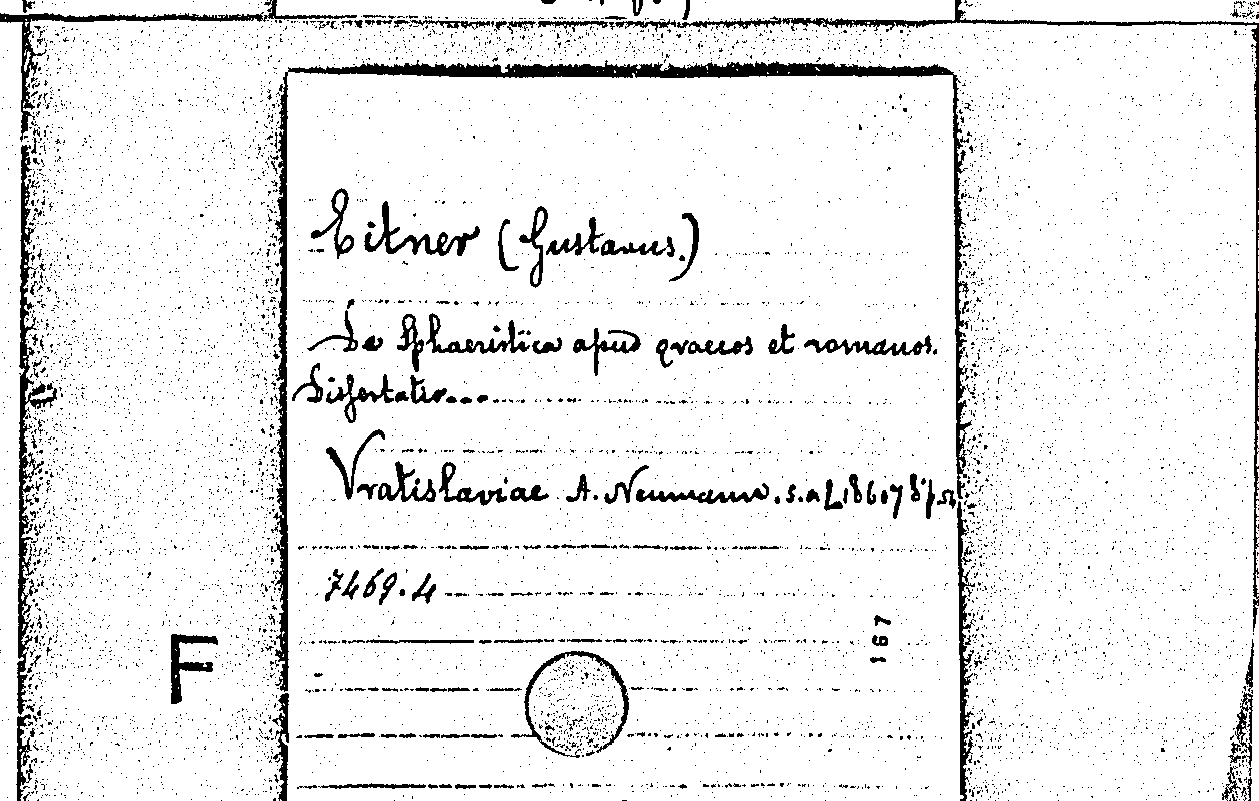 Eitner (Gustavus.)
De Sphaeristica apud graecos et romanos.
Dissertatio...
Vratislaviae A. Neumann. s.a [1860] 8° p.
7469.4
167
F